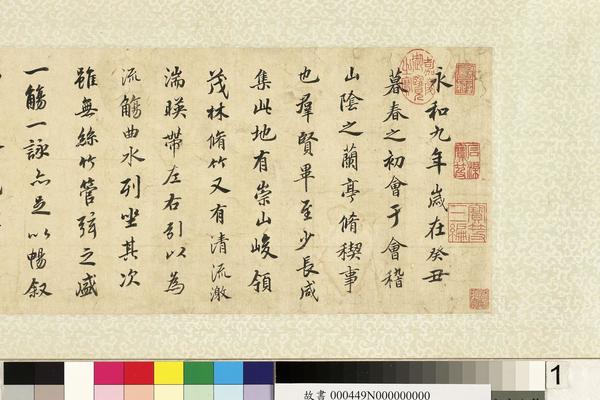 永和九年歲在癸丑
暮春之初會于會稽
山陰之蘭亭脩稧事
也羣賢畢至少長咸
集此地有崇山峻領
茂林脩竹又有清流激
湍暎帶左右引以為
流觴曲水列坐其次
雖無絲竹管弦之盛
一觴一詠亦足以暢叙
嘉慶御覽之寶
寶笈三編
1
故書 000449N000000000